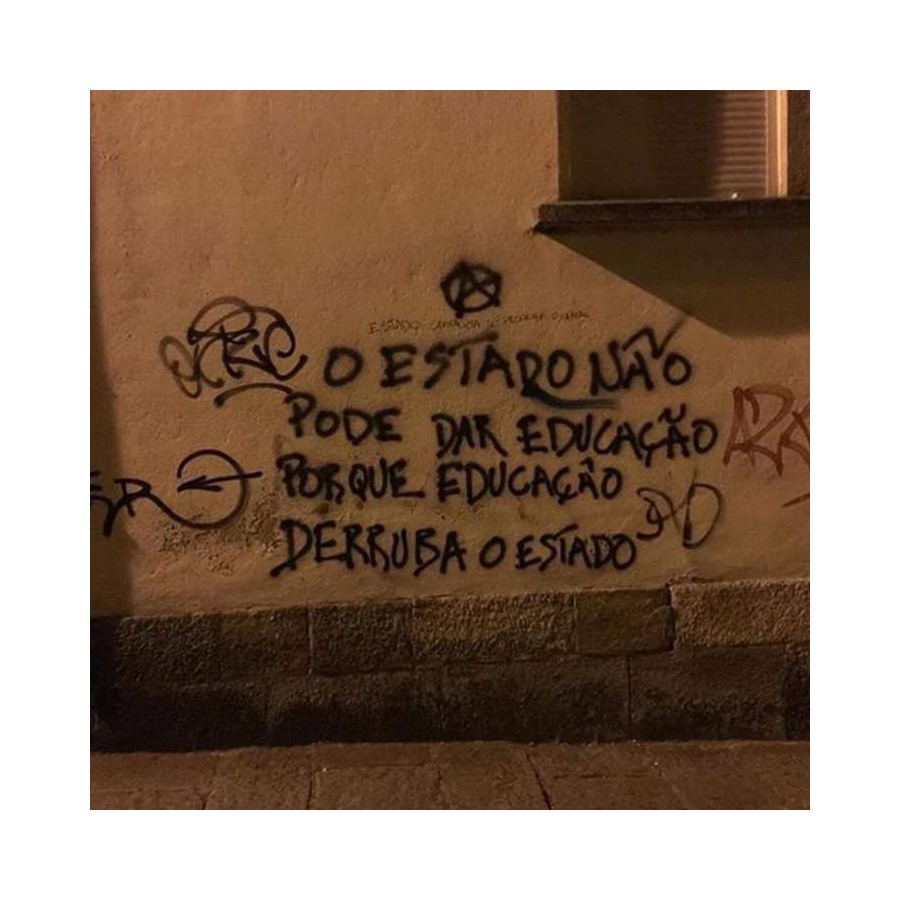 ESTADO
O ESTADO NÃO
PODE DAR EDUCAÇÃO
PORQUE EDUCAÇÃO
DERRUBA O ESTADO